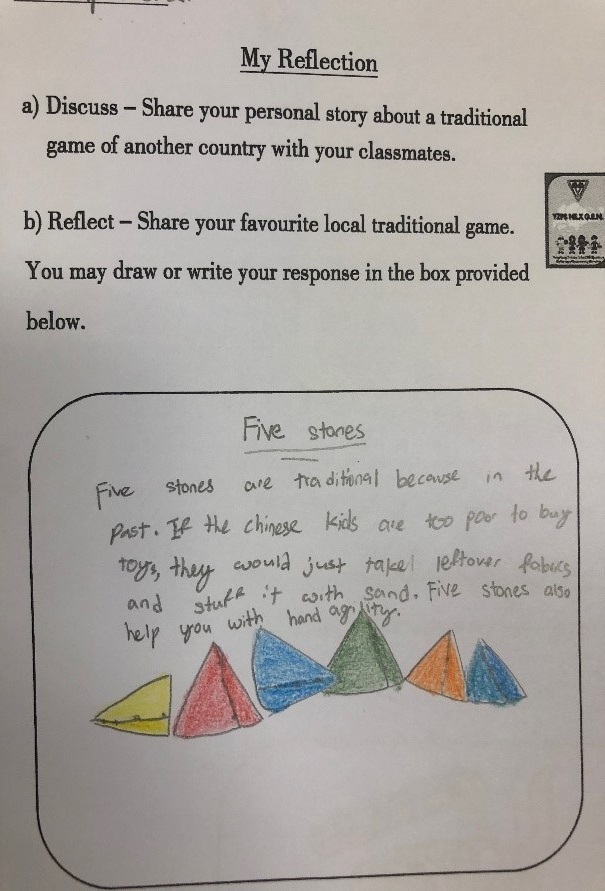 My Reflection
a) Discuss – Share your personal story about a traditional
game of another country with your classmates.
b) Reflect – Share your favourite local traditional game.
You may draw or write your response in the box provided
below.
Five stones
Five stones are traditional because in the
past. If the chinese kids are too poor to buy
toys, they would just take leftover fabrics
and stuff it with sand. Five stones also
help you with hand agility.